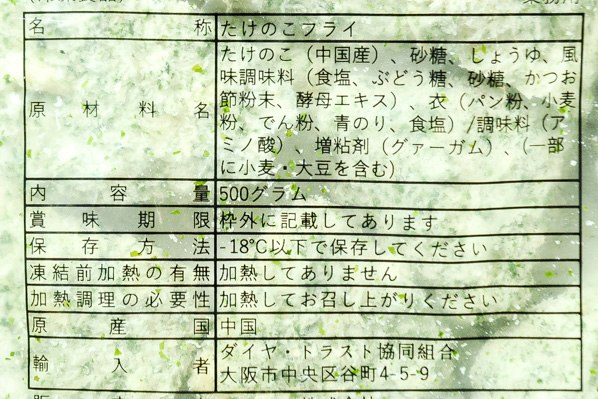 名称 たけのこフライ
原材料名 たけのこ（中国産）、砂糖、しょうゆ、風
味調味料（食塩、ぶどう糖、砂糖、かつお
節粉末、酵母エキス）、衣（パン粉、小麦
粉、でん粉、青のり、食塩）/調味料（ア
ミノ酸）、増粘剤（グァーガム）、（一部
に小麦・大豆を含む)
内容量 500グラム
賞味期限 枠外に記載してあります
保存方法 -18℃以下で保存してください
凍結前加熱の有無 加熱してありません
加熱調理の必要性 加熱してお召し上がりください
原産国 中国
輸入者 ダイヤ・トラスト協同組合
大阪市中央区谷町4-5-9